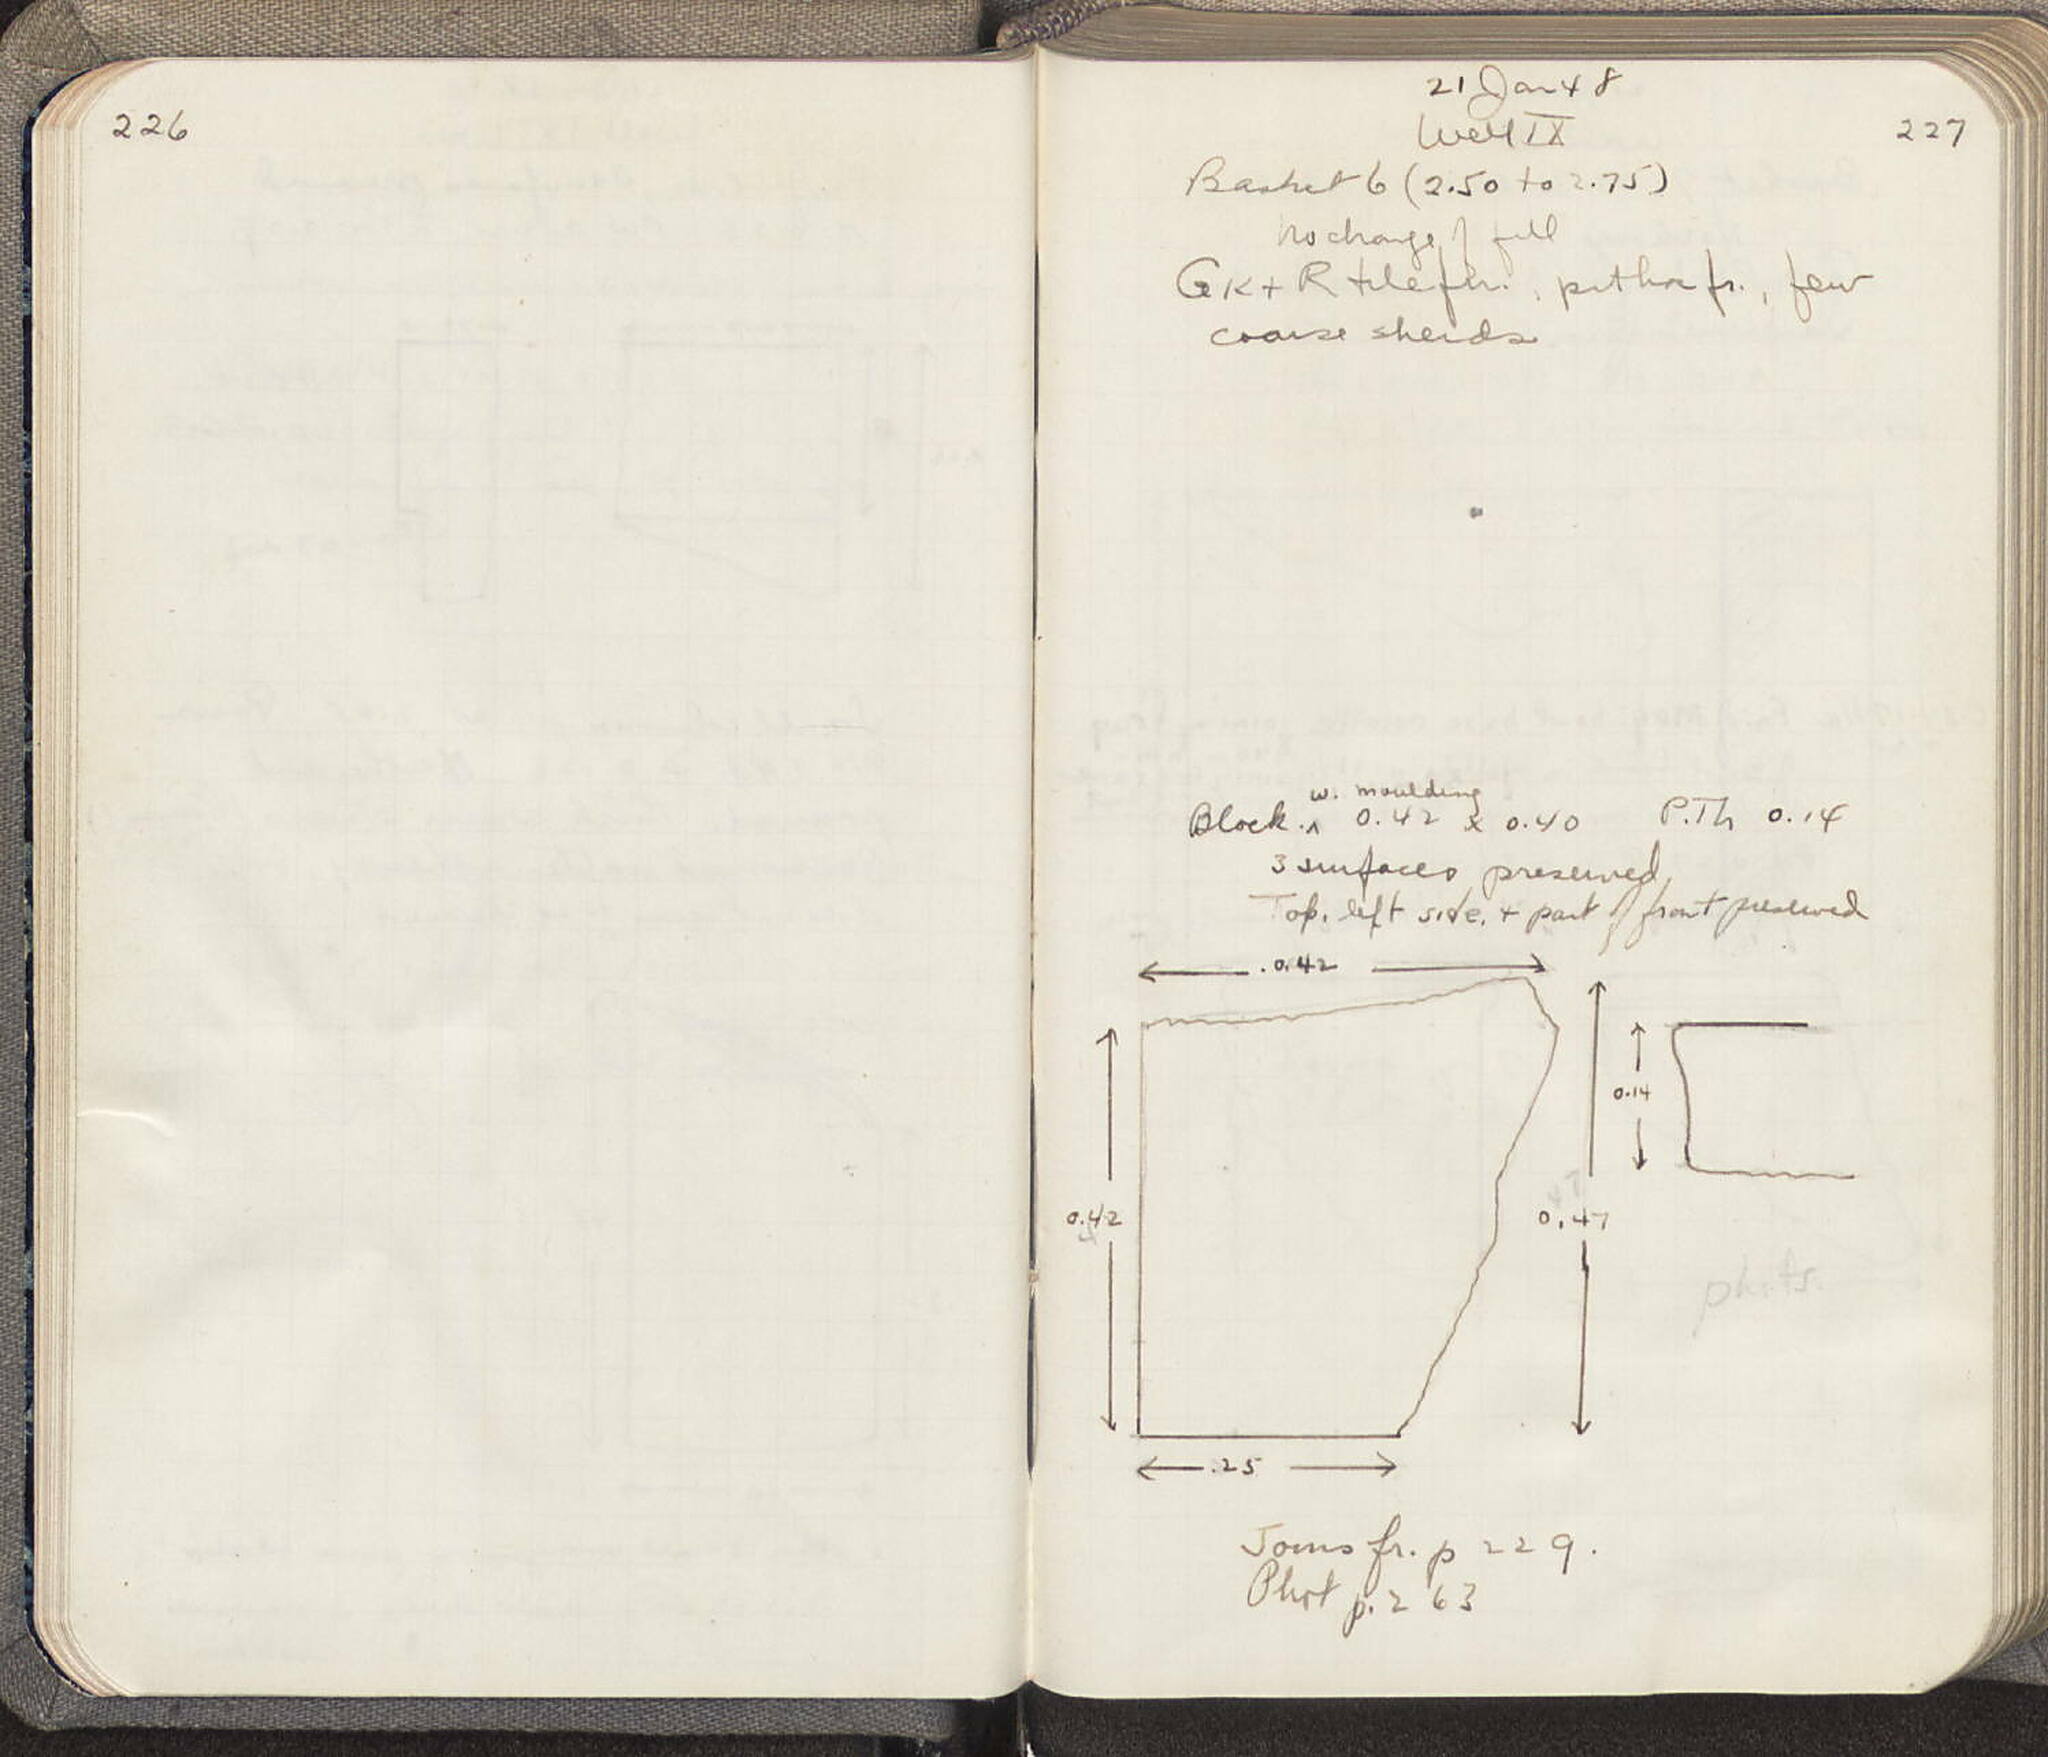 226
21 Jan 48
Well IX
227
Basket 6 (2.50 to 2.75)
No change of fill
Gk + R tile frr., pithos fr., few
coarse sherds
w. moulding
Block ^ 0.42 x 0.40 P.Th 0.14
3 surfaces preserved
Top, left side, + part of front preserved
0.42
0.14
0.42
47
0.47
.25
Joins fr. p 229.
Phot p. 263